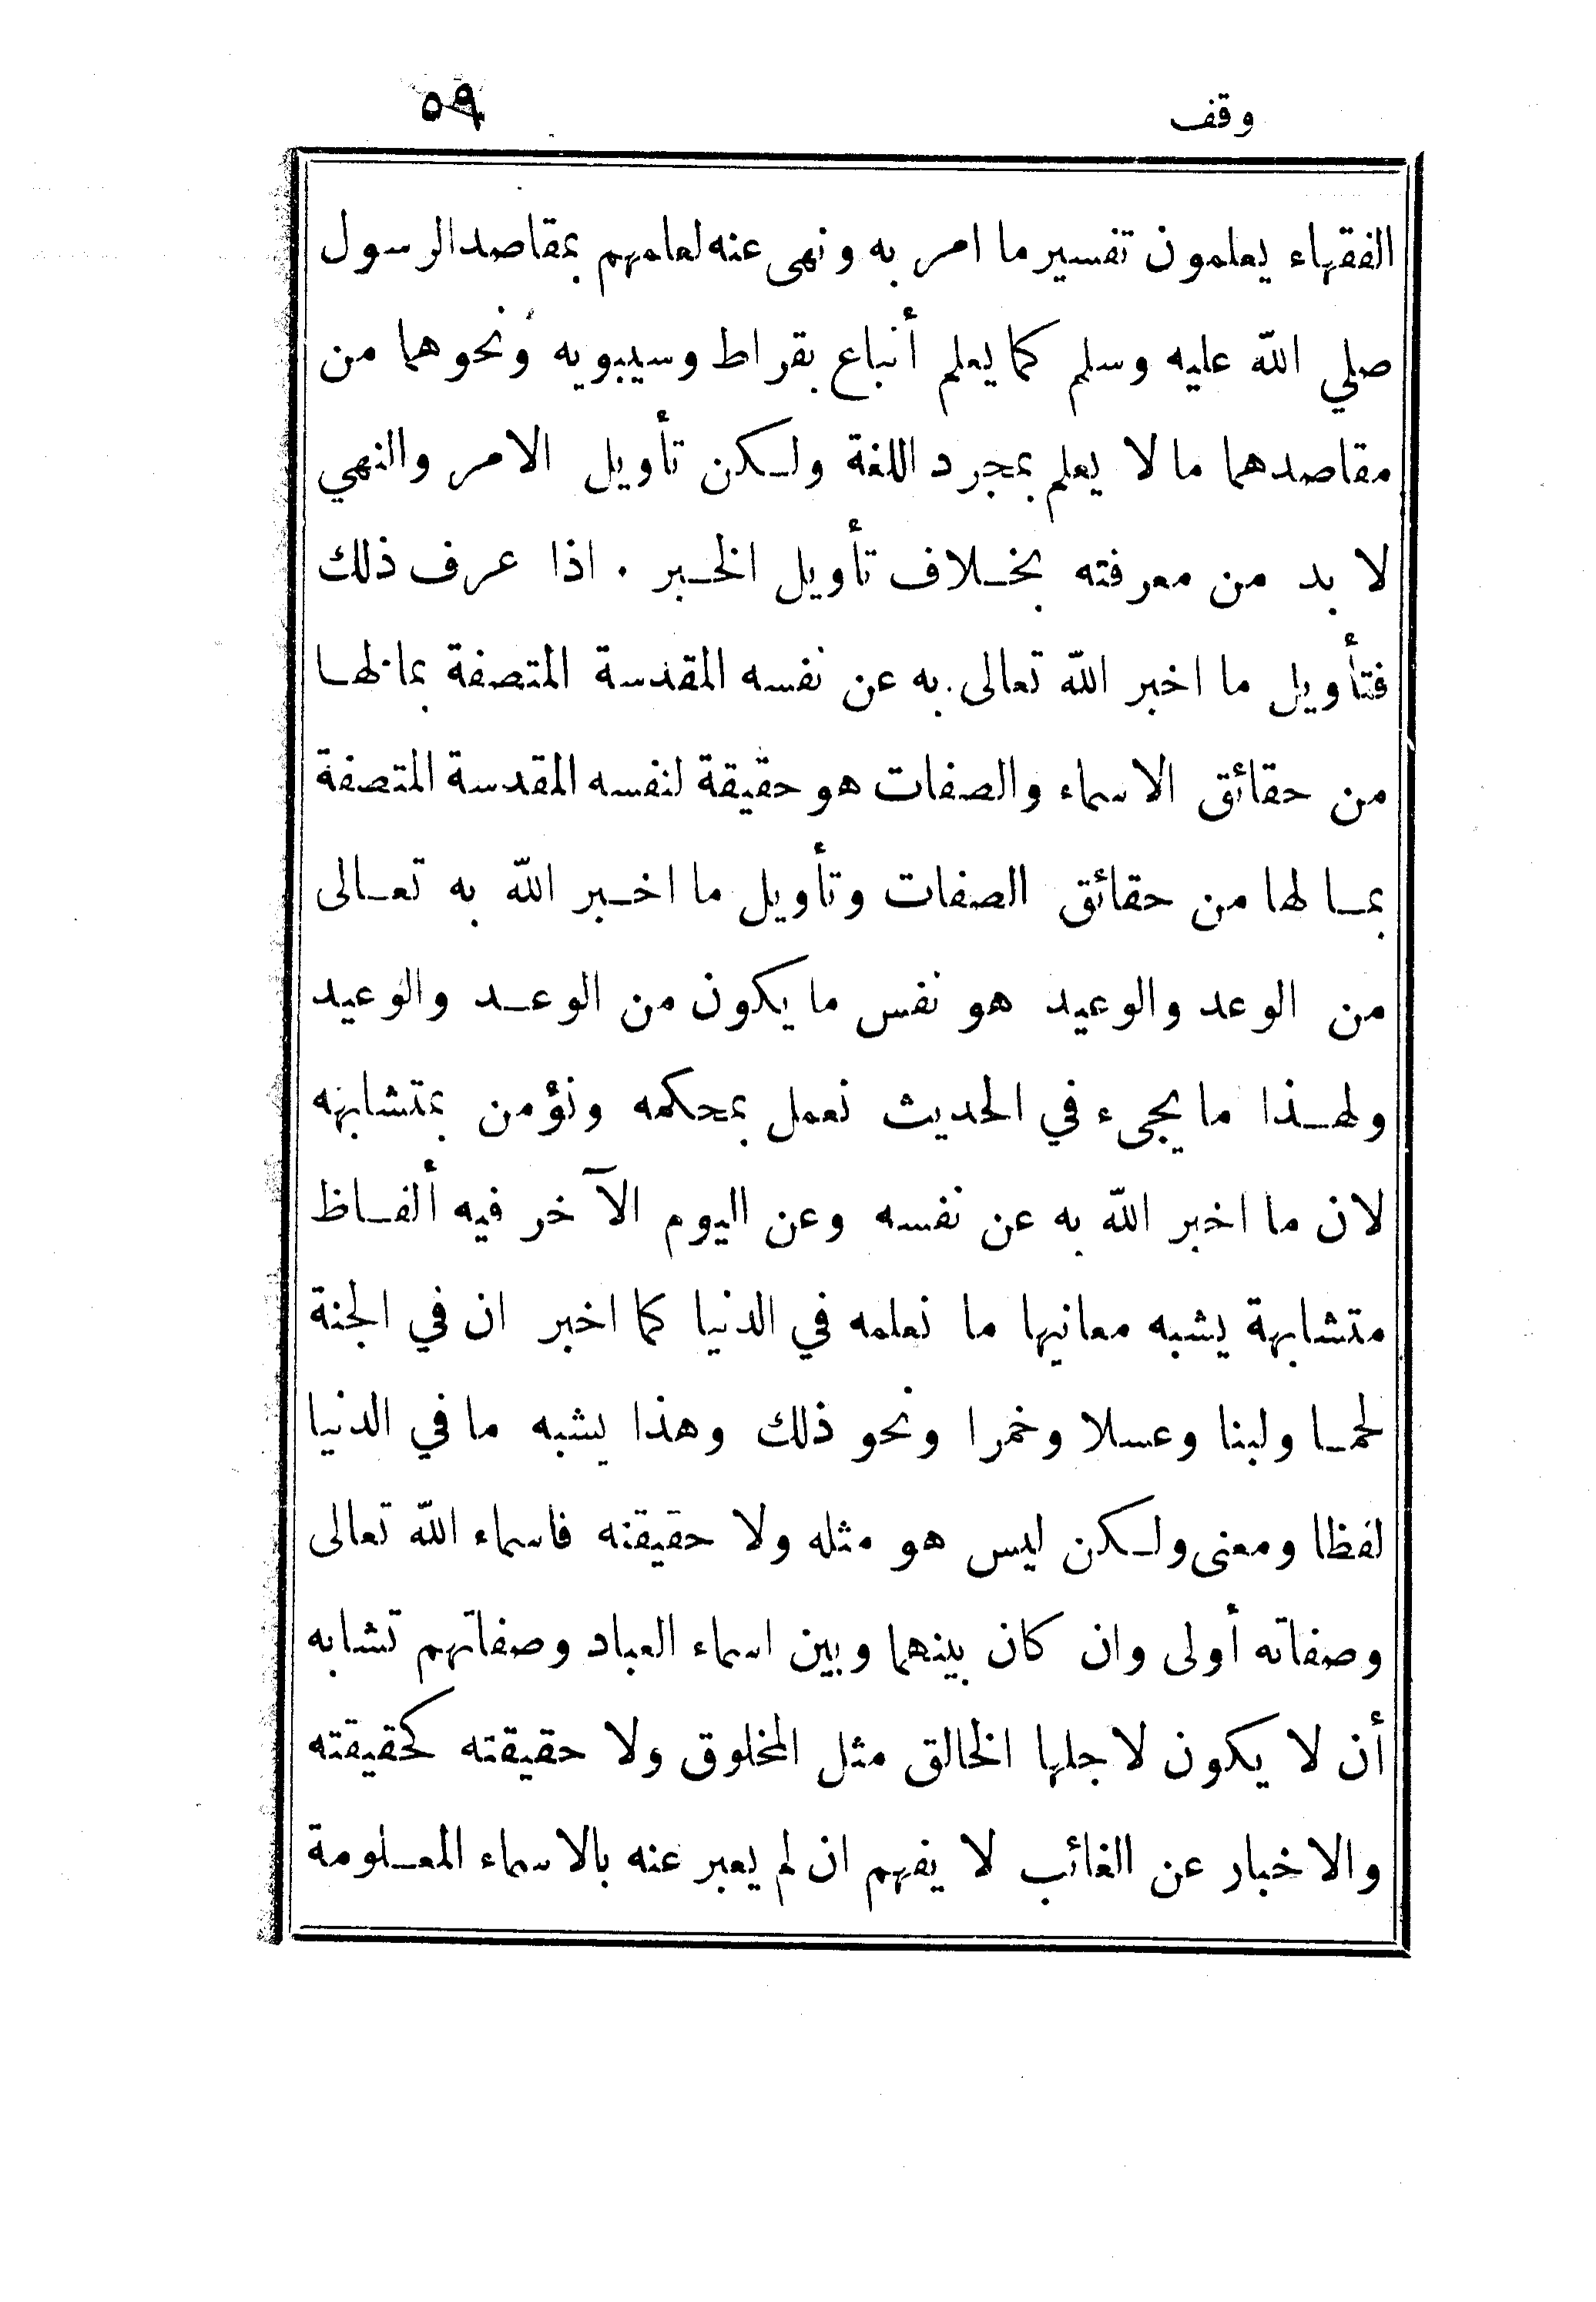 وقف ٥٩
الفقهاء يعلمون تفسير ما امر به ونهى عنه لعلمهم بمقاصد الرسول
صلي الله عليه وسلم كما يعلم أتباع بقراط وسيبويه ونحوهما من
مقاصدهما ما لا يعلم بمجرد اللغة ولكن تأويل الامر والنهي
لا بد من معرفته بخلاف تأويل الخبر . اذا عرف ذلك
فتأويل ما اخبر الله تعالى به عن نفسه المقدسة المتصفة بما لها
من حقائق الاسماء والصفات هو حقيقة لنفسه المقدسة المتصفة
بما لها من حقائق الصفات وتأويل ما اخبر الله به تعالى
من الوعد والوعيد هو نفس ما يكون من الوعد والوعيد
ولهذا ما يجىء في الحديث نعمل بمحكمه ونؤمن بمتشابهه
لان ما اخبر الله به عن نفسه وعن اليوم الآخر فيه ألفاظ
متشابهة يشبه معانيها ما نعلمه في الدنيا كما اخبر ان في الجنة
لحما ولبنا وعسلا وخمرا ونحو ذلك وهذا يشبه ما في الدنيا
لفظا ومعنى ولكن ليس هو مثله ولا حقيقته فاسماء الله تعالى
وصفاته أولى وان كان بينهما وبين اسماء العباد وصفاتهم تشابه
أن لا يكون لاجلها الخالق مثل المخلوق ولا حقيقته كحقيقته
والاخبار عن الغائب لا يفهم ان لم يعبر عنه بالاسماء المعلومة